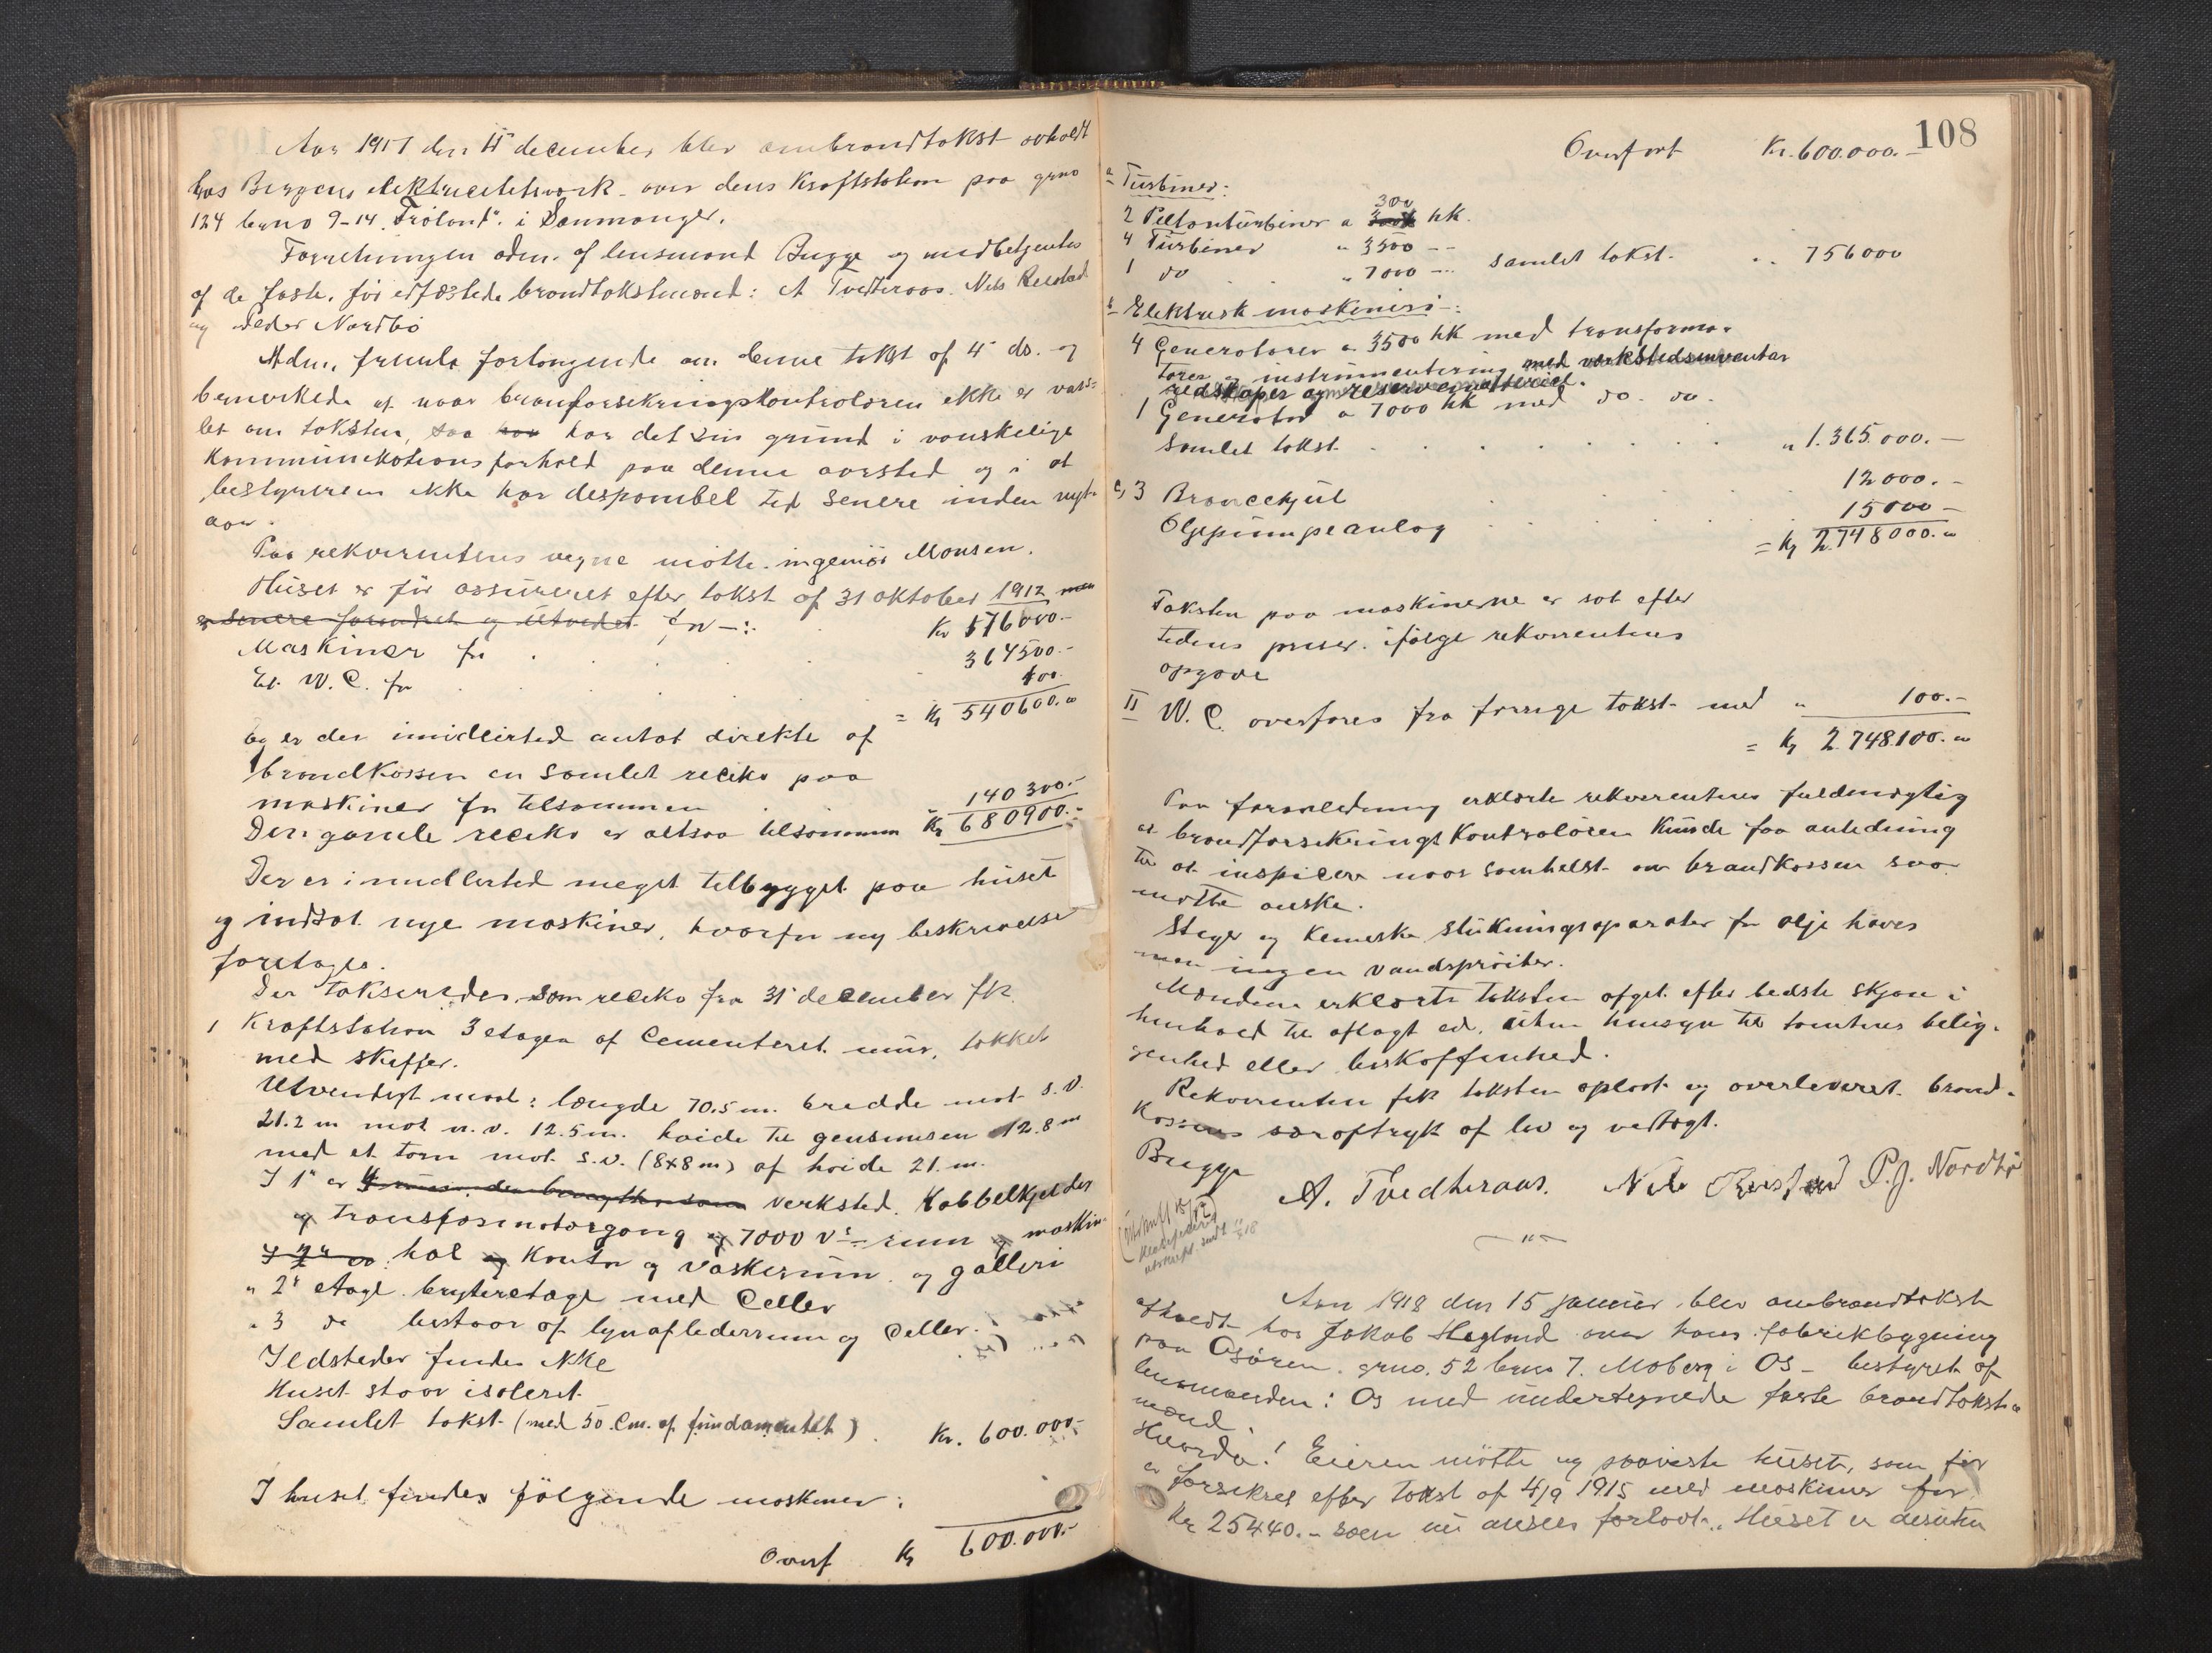 Aar 1917 den 11' december blev ombrandtakst avholdt
hos Bergens elektricitetsverk over dens Kraftstation paa grno
124 brno 9-14 "Fröland" i Samnanger.
Forretningen adm. af lensmand Bugge og medbetjentes
af de faste, för edfæstede brandtakstmænd: A Tvedteraas. Nils
og Peder Nordbö
Adm. fremla forlangende om denne takst af 4' ds. og
bemerkede at naar brandforsikringskontroløren ikke er vars-
let om taksten, saa har det sin grund i vanskelige
Kommunikationsforhold paa denne aarstid og i at
bestyreren ikke har desponibel tid senere inden nyt-
aar.
Paa rekvirentens vegne mötte ingeniör Monsen.
Huset er för assureret efter takst af 31 oktober 1912 men
er senere forandret og utvidet for -: Kr 176000.-
Maskiner for 364500.-
Et W.C. for 100.-
= Kr 540600.-
og er der imidlertid antat direkte af
brandkassen en samlet reciko paa
maskiner for tilsammen 140300.-
Den gamle reciko er altsaa tilsammen Kr 680900.-
Der er imidlertid meget tilbygget paa huset
og indsat nye maskiner, hvorfor ny beskrivelse
foretages.
Der takseredes som reciko fra 31' december fk.
1 Kraftstation 3 etager af cementeret mur, tækket
med skiffer.
Utvendigt maal: længde 70.5 m. bredde mot s.v.
21.2 m mot n.v. 12.5 m. höide til gensimsen 12.8 m
med et tarn mot s.v. (8x8 m) af höide 21. m.
I 1' er verksted. Kabbelkjelder
og transformatorgang og 7000 vs rum og maskin-
hal og Kontor og vaskerum og galleri
" 2' etage bryteretage med Celler
" 3 do bestaar af lynaflederrum og Celler.
Ildsteder findes ikke
Huset staar isoleret
Samlet takst (med 50 Cm. af fundamentet) Kr. 600.000.-
I huset findes fölgende maskiner:
600.000.-
Overf Kr
108
Overfört Kr. 600.000.-
a Turbiner:
2 Peltonturbiner a 300 hk.
4 Turbiner " 3500 --
1 do " 7000 -- samlet takst " 756000
b Elektrisk maskineri -:
4 Generatorer a 3500 hk med transforma-
torer og instrumentering med verkstedsinventar
redskaper og reservemateriel.
1 Generator a 7000 hk med do. do.
Samlet takst " 1.365.000.-
c, 3 Broncehjul 12000.-
Oljepumpeanlæg 15000 -
= Kr 2.748000.-
Taksten paa maskinerne er sat efter
tidens priser ifölge rekvirentens
opgave
II W.C. overföres fra forrige takst med " 100.-
= Kr 2.748.100.-
Paa foranledning erklærte rekvirentens fuldmægtig
at brandforsikringskontrolören kunde faa anledning
til at inspicere naar somhelst om brandkassen saa
maatte önske.
Stiger og kemiske slukningsaparater for olje haves
men ingen vandspröiter.
Mændene erklærte taksten afgit efter bedste skjön i
henhold til aflagt ed, uten hensyn til tomtens belig-
genhed eller beskaffenhed.
Rekvirenten fik taksten oplæst og overleveret brand-
kassens særaftryk af lov og vedtægt.
Bugge
A. Tvedteraas. P.J. Nordbö
Aar 1918 den 15 januar blev ombrandtakst
afholdt hos Jakob Hegland over hans fabrikbygning
paa Osören grno. 52 brno 7. Moberg i Os - bestyret af
lensmanden i Os med undertegnede faste brandtakst-
mænd.
Hvorda! Eieren mötte og paaviste huset, som för
er forsikret efter takst af 4/9 1915 med maskiner for
Kr 25440.- som nu ansees forlavt. Huset er desuten